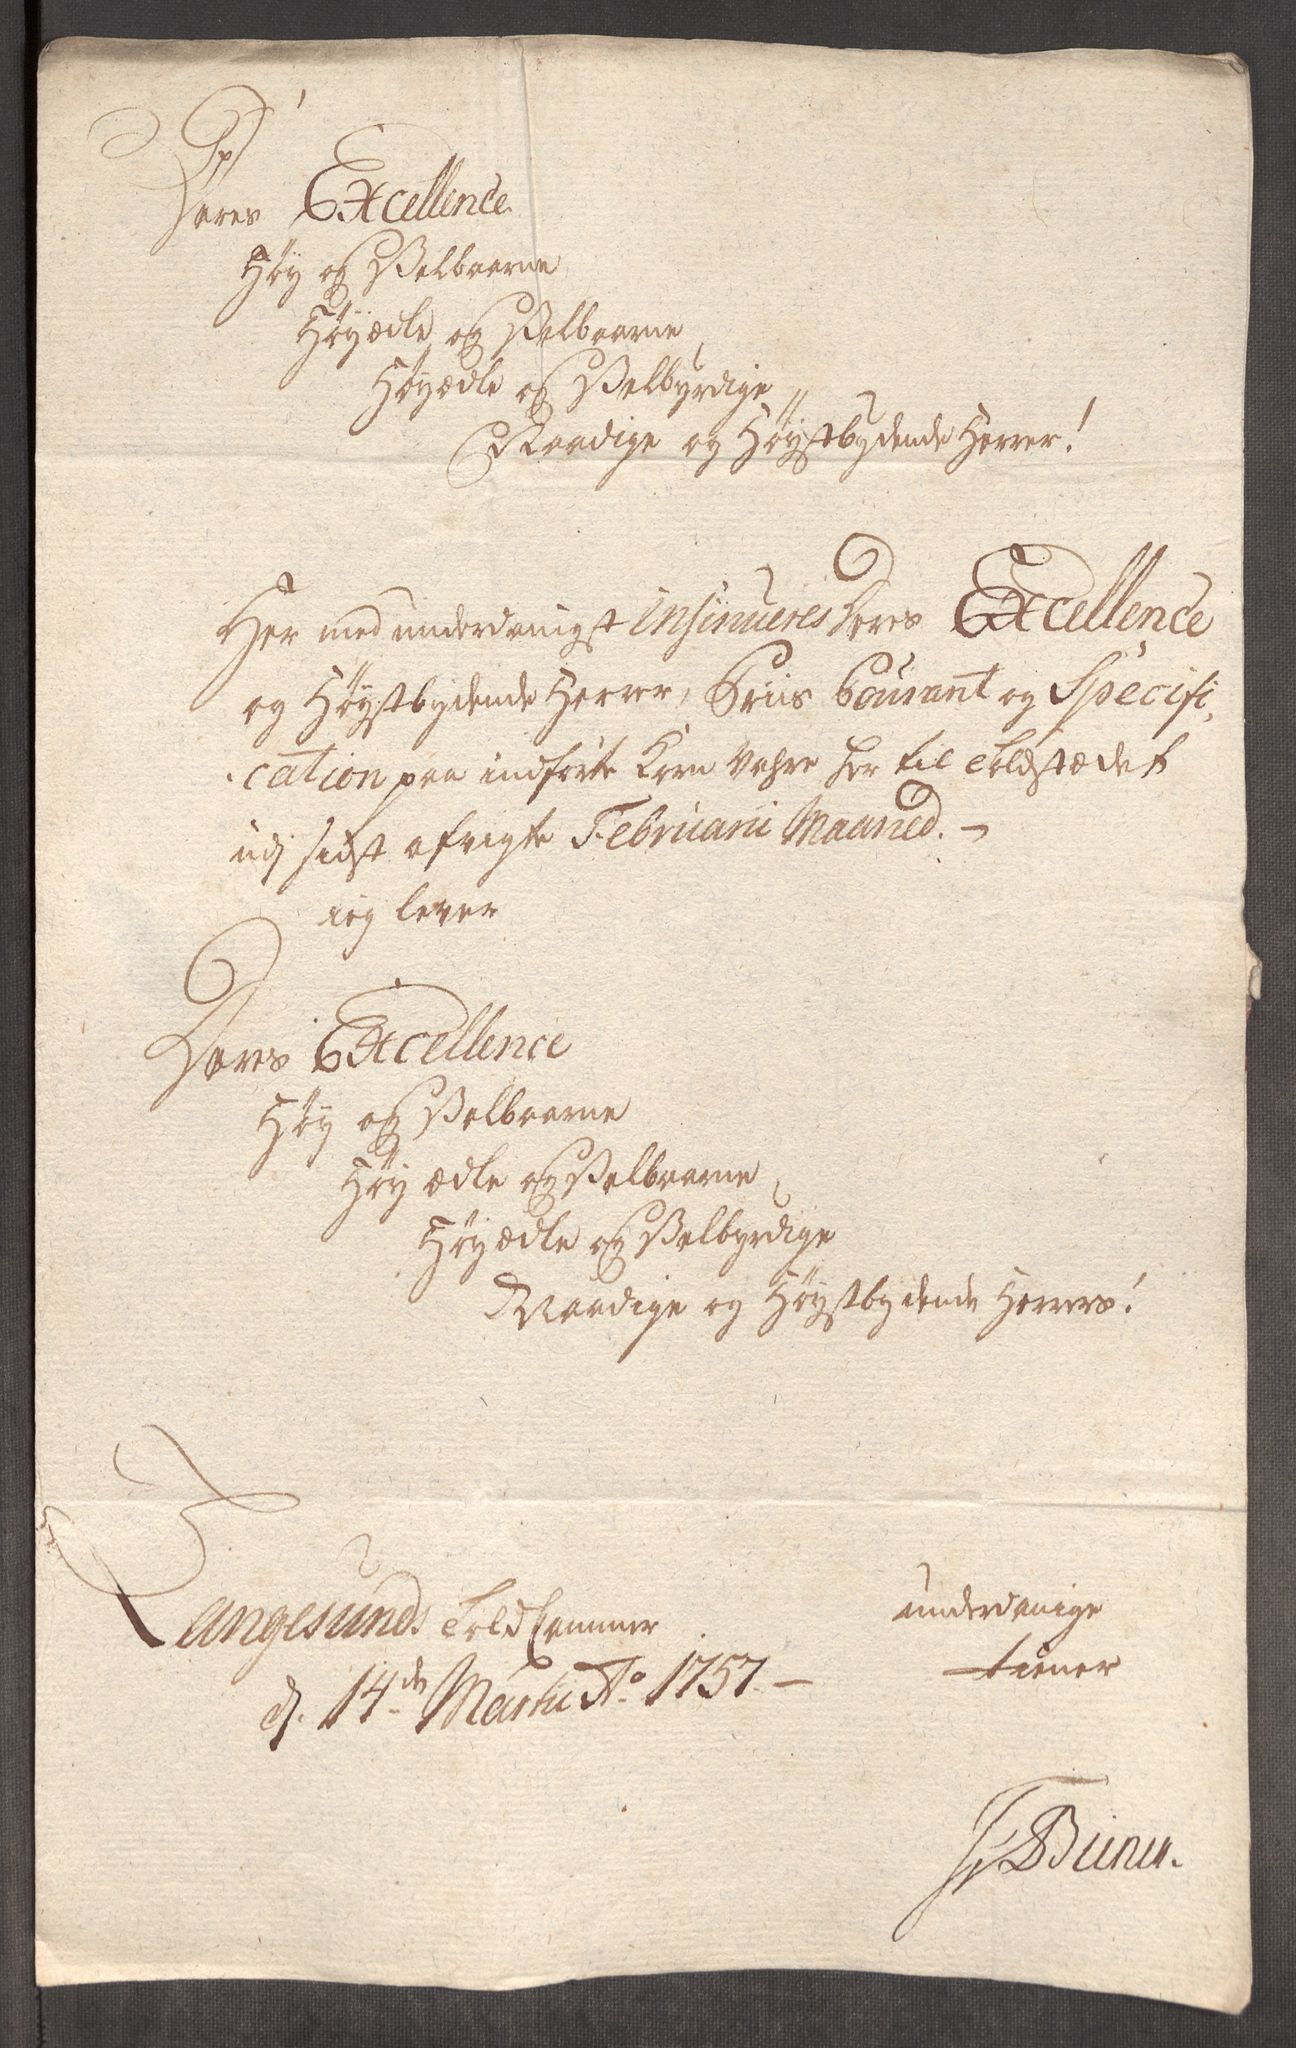 Deres Excellence
Høy og Velbaarne
Høyædle og Velbaarne
Høyædle og Velbyrdige
Naadige og Høystbydende Herrer!
Her med underdanigst insinueres Deres Excellence
og Høystbydende Herrer, Priis Courant og Specifi
cation paa indførte Korn Vahre her til Toldstædet
udj sidst afvigte Februarii Maaned. –
ieg lever
Deres Excellence
Høy og Velbaarne
Høy ædle og Velbaarne
Høyædle og Velbyrdige
Naadige og Høystbydende Herrers!
Langesunds Told Cammer
d. 14de Martii Ao 1757. –
underdanige
tiener